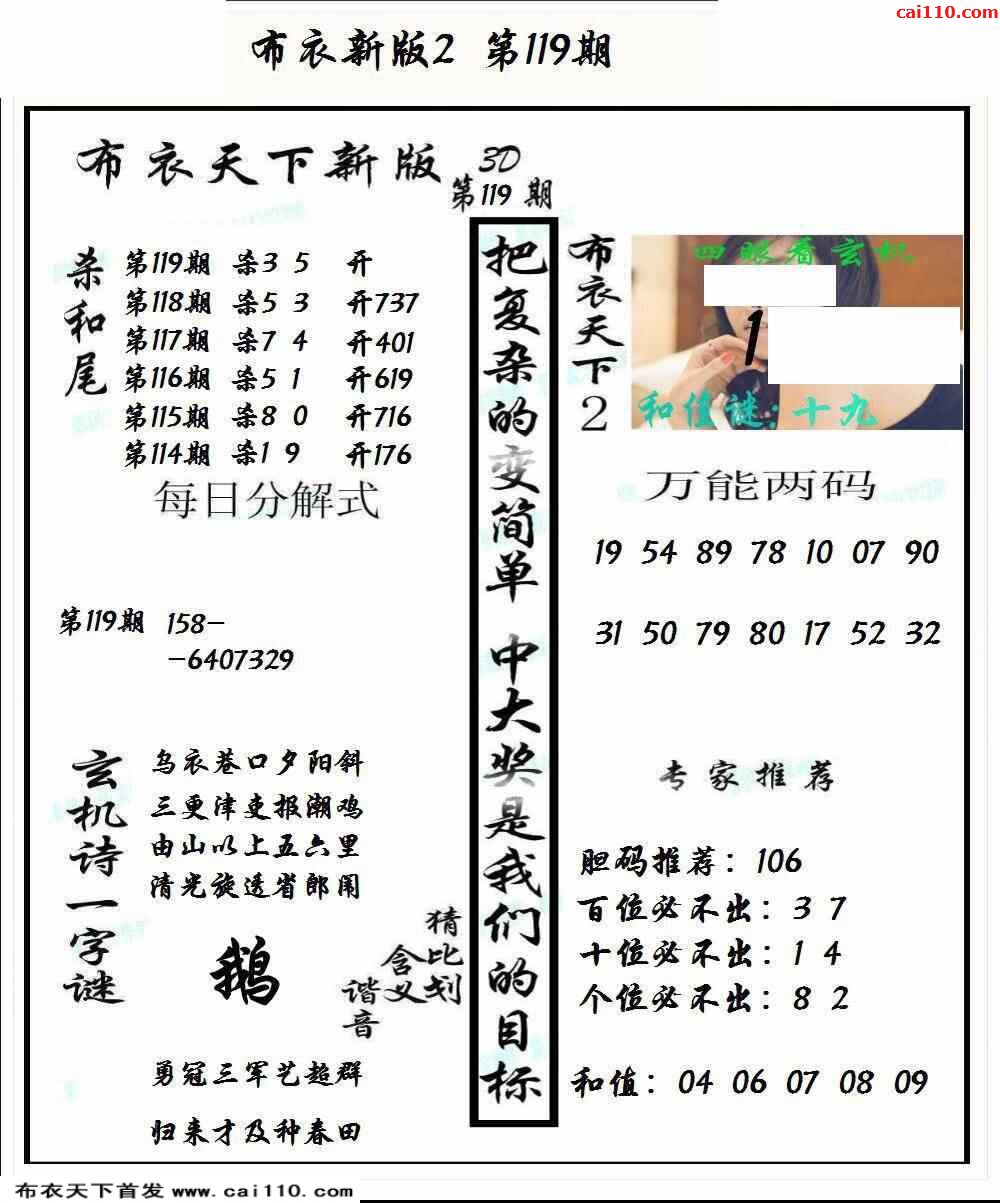 cai110.com
布衣新版2 第119期
布衣天下新版
3D
第119期
杀和尾
第119期 杀3 5 开
第118期 杀5 3 开737
第117期 杀7 4 开401
第116期 杀5 1 开619
第115期 杀8 0 开716
第114期 杀1 9 开176
每日分解式
第119期 158-
-6407329
玄机诗一字谜
乌衣巷口夕阳斜
三更津吏报潮鸡
由山以上五六里
清光旋透省郎闱
鹅
猜比划
含义
谐音
勇冠三军艺超群
归来才及种春田
把复杂的变简单 中大奖是我们的目标
布衣天下2
四眼看玄机
1
和值谜:十九
万能两码
19 54 89 78 10 07 90
31 50 79 80 17 52 32
专家推荐
胆码推荐：106
百位必不出：3 7
十位必不出：1 4
个位必不出：8 2
和值：04 06 07 08 09
布衣天下首发 www.cai110.com